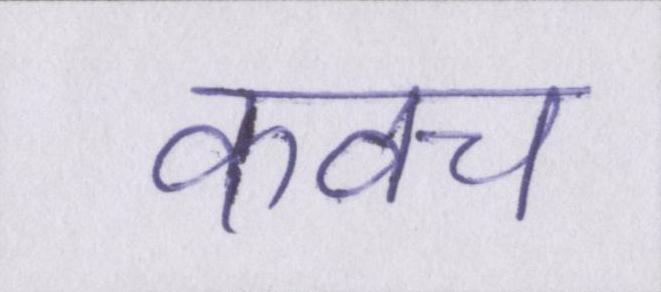 कवच